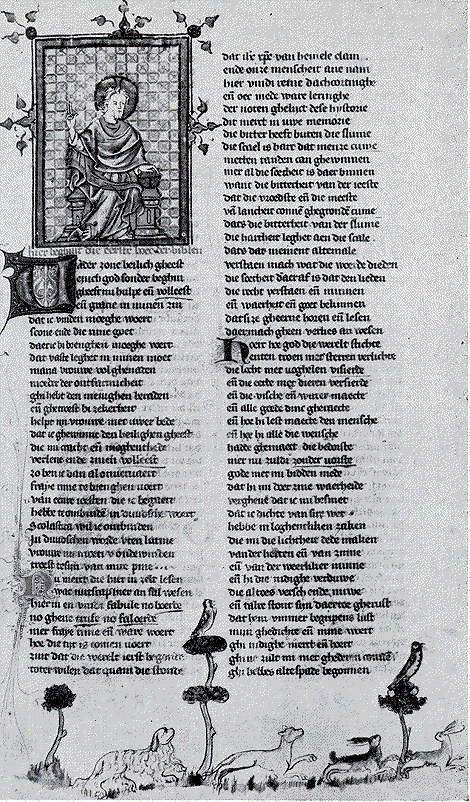 hier beghint die eerste boec der biblen
Vader zone heilich gheest
enich god sonder beghin
gheeft mi hulpe eñ volleest
eñ gratie in minen zin
dat ic vinden moeghe woert
scone ende die rime goet
daer ic bi brenghen moeghe voert
dat vaste leghet in minen moet
maria vrouwe vol ghenaden
moeder der ontfarmicheit
ghi hebt den menighen beraden
eñ ghetroest bi zekerheit
helpt mi vrouwe met uwer bede
dat ic ghewinne den heilighen gheest
die mi cracht eñ moghenthede
verlene ende zinen volleest
zo ben ic dan al onvervaert
fraye rime te brenghen voert
van eere ieesten die ic begaert
hebbe te ombindene in duudsche woert
Scolastica wil ic ontbinden
in duudschen woorde uten latine
vrouwe nu moet u onderwinden
troest te sijn van mire pine
Nu merct die hier in zelt lesen
wat nutscap hier an sal wesen
hier in en vindi fabule no boerde
no ghene trufe no faloerde
mer fraye rime eñ ware woert
hoe die tijt is comen voert
zint dat die werelt ierst began
toter wilen dat quam die stonde
dat ihc xpc van hemele clam
ende onze menscheit ane nam
hier vindi in
eñ oec mede ware leringhe
der noten ghelijct dese hystorie
die merct in uwe memorie
die bitter heeft buten die slume
die scael is hart dat menze cume
metten tanden can ghewinnen
mer al die soetheit is daer binnen
want die bitterheit van der ieeste
dat die vroedste eñ die meeste
dats die bitterheit van der slume
die hartheit leghet aen die scale
dats dat men niet altemale
verstaen mach wat die woerde dieden
die soetheit daer af is dat den lieden
die recht verstaen eñ minnen
eñ waerheit eñ goet bekinnen
dat si ze gheerne horen eñ lesen
daer mach gheen verlies an wesen
Hoert hoe god die werelt stichte
die locht met voghelen visierde
eñ die eerde met dieren versierde
eñ die vische eñ water maecte
eñ alle goede dinc gheraecte
eñ hoe hi lest maecte den mensche
eñ hoe hi alle die wensche
hadde ghemaect die beduste
mer nu zuldi zonder vorste
gode met mi bidden mede
dat hi mi dor zine waerhede
vergheve dat ic mi besmet
dat ic dichte van
hebbe in loghentliken zaken
die mi die lichtheit dede maken
van der herten eñ van zinne
eñ van der wereliker minne
eñ hi die nidighe verduwe
die altoes versch ende nuwe
eñ talre stont sijn daer toe gherust
dat hem ummer begripens lust
mijn ghedichte eñ mine woert
ghi nidighe merct eñ hoert
ghi belles alte spade begonnen